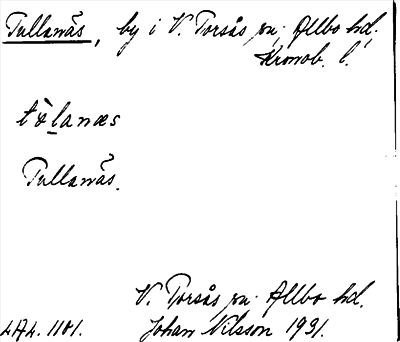 Tullanäs, by i V. Torsås sn; Allbo hd.
Kronob. l.
tòlanæs
Tullanäs.
V. Torsås sn. Allbo hd.
LAL. 1181. Johan Nilsson 1931.